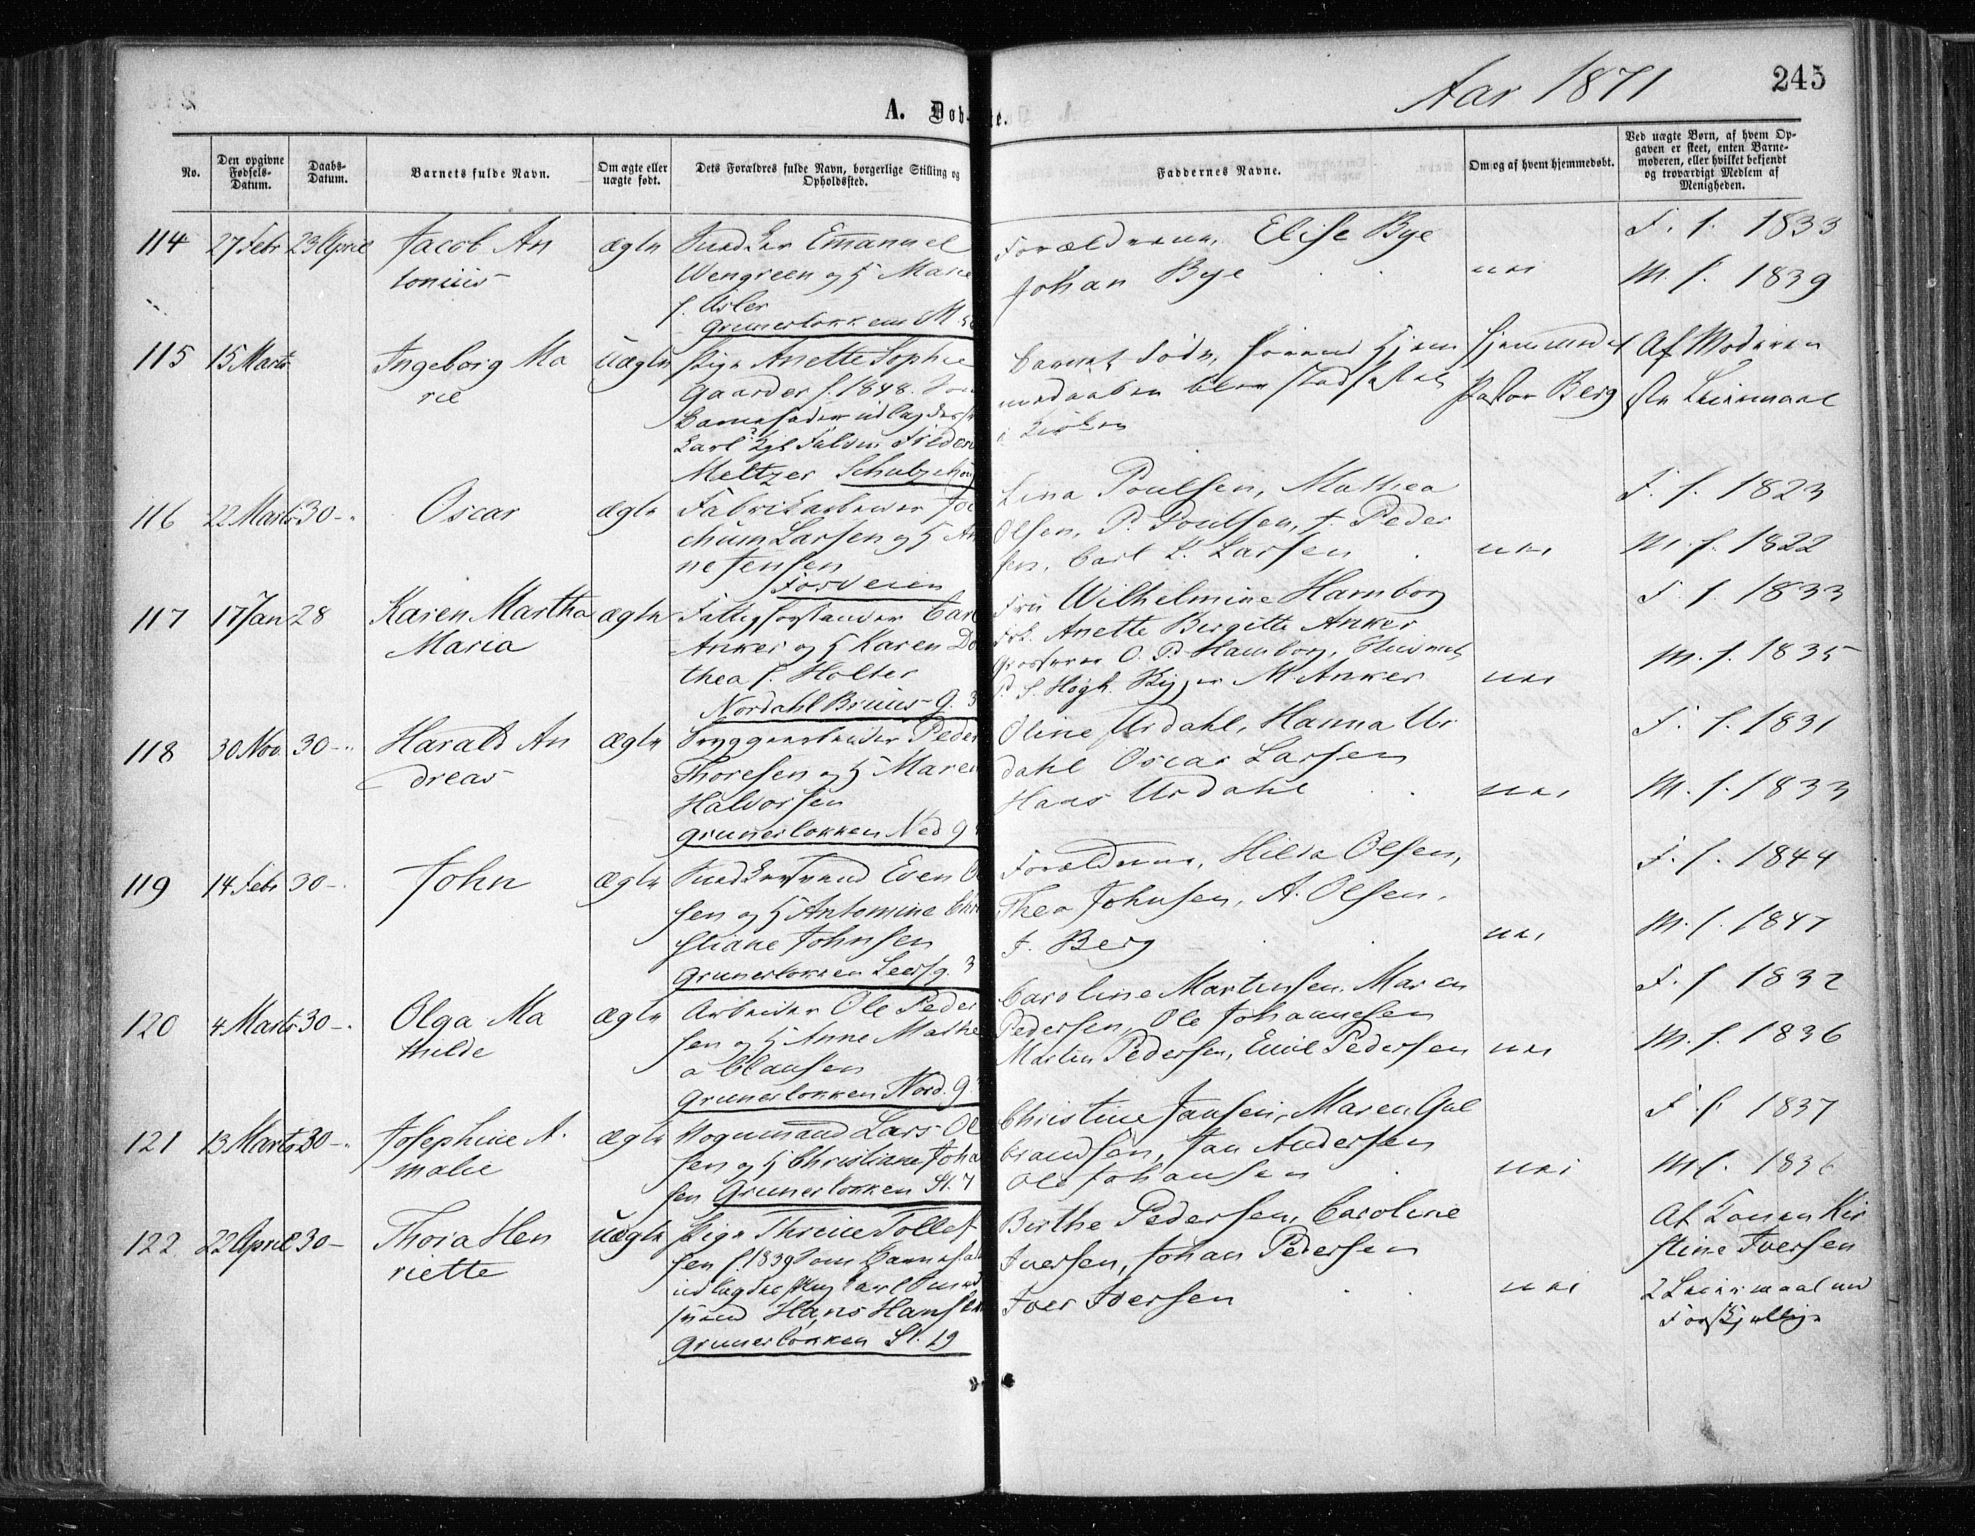 Aar 1871
245
A. Døbte.
No.
Den opgivne Fødsels-Datum.
Daabs-Datum.
Barnets fulde Navn.
Om ægte eller uægte født.
Dets Forældres fulde Navn, borgerlige Stilling og Opholdssted.
Faddernes Navne.
Om og af hvem hjemmedøbt.
Ved uægte Børn, af hvem Opgaven er skeet, enten Barnemoderen, eller hvilket bekjendt og troværdigt Medlem af Menigheden.
114 27 Febr 23 April Jacob An
tonius
ægte
Emanuel
Wengreen og H Marie
f. Usler
Grunerløkken M
Forældrene, Elise Bye
Johan Bye
nei
F. f. 1833
M. f. 1839
115 15 Marts Ingeborg Ma
rie
Uægte
Pige Anette Sophie
Gaarder f. 1848. Som
Barnefader udlagdes
Carl
Meltzer Schulze
Barnet døde, førend Hjem
medaaben blev stadfæstet
i Kirken
Hjemmedøbt
Pastor Berg
Af Moderen
Leiermaal
116 22 Marts 30 - Oscar
ægte
Fabrikarbeider Jo
chum Larsen og H An
ne Jensen
Fosveien
Lina Poulsen, Mathea
Olsen, P. Poulsen, J. Peder
sen, Carl L. Larsen
nei
F. f. 1823
M. f. 1822
117 17 Jan 28 Karen Martha
Maria
ægte
Fattigforstander Carl
Anker og H Karen Do
thea f. Holter
Nordahl Bruns G. 3
Fru Wilhelmine Hamborg
Frk. Anette Birgitte Anker
O. P. Hamborg,
P. S. Høgh. M Anker
nei
F. f. 1833
M. f. 1835
118 30 Nov 30 - Harald An
dreas
ægte
Bryggearbeider Peder
Thoresen og H Maren
Halvorsen
Grunerløkken Ned G
Oline Urdahl, Hanna Ur
dahl Oscar Larsen
Hans Urdahl
nei
F. f. 1831
M. f. 1833
119 14 Febr 30 - John
ægte
Even Ol
sen og H Antomine Chri
stiane Johnsen
Grunerløkken Leersg. 3
Forældrene, Hilda Olsen,
Thea Johnsen, A. Olsen,
J. Berg
nei
F. f. 1844
M. f. 1847
120 4 Marts 30 - Olga Ma
thilde
ægte
Arbeider Ole Peder
sen og H Anne Mathe
a Clausen
Grunerløkken Nord. G
Caroline Martinsen, Maren
Pedersen, Ole Johannesen
Martin Pedersen, Emil Pedersen
nei
F. f. 1832
M. f. 1836
121 13 Marts 30 - Josephine A
malie
ægte
Vognmand Lars Ol
sen og H Christiane Joha
sen Grunerløkken St. 7
Christine Jansen, Maren Gul
brandsen, Jan Andersen
Ole Johansen
nei
F. f. 1837
M f. 1836
122 22 April 30 - Thora Hen
riette
Uægte
Pige Threine Tollef
sen f. 1839 Som Barnefader
udlagdes Ung Carl Smed
svend Hans Hansen
Grunerløkken St. 19
Birthe Pedersen, Caroline
Iversen, Johan Pedersen
Iver Iversen
nei
Af Konen Kir
stine Iversen
2 Leiermaal med
Forskjellige